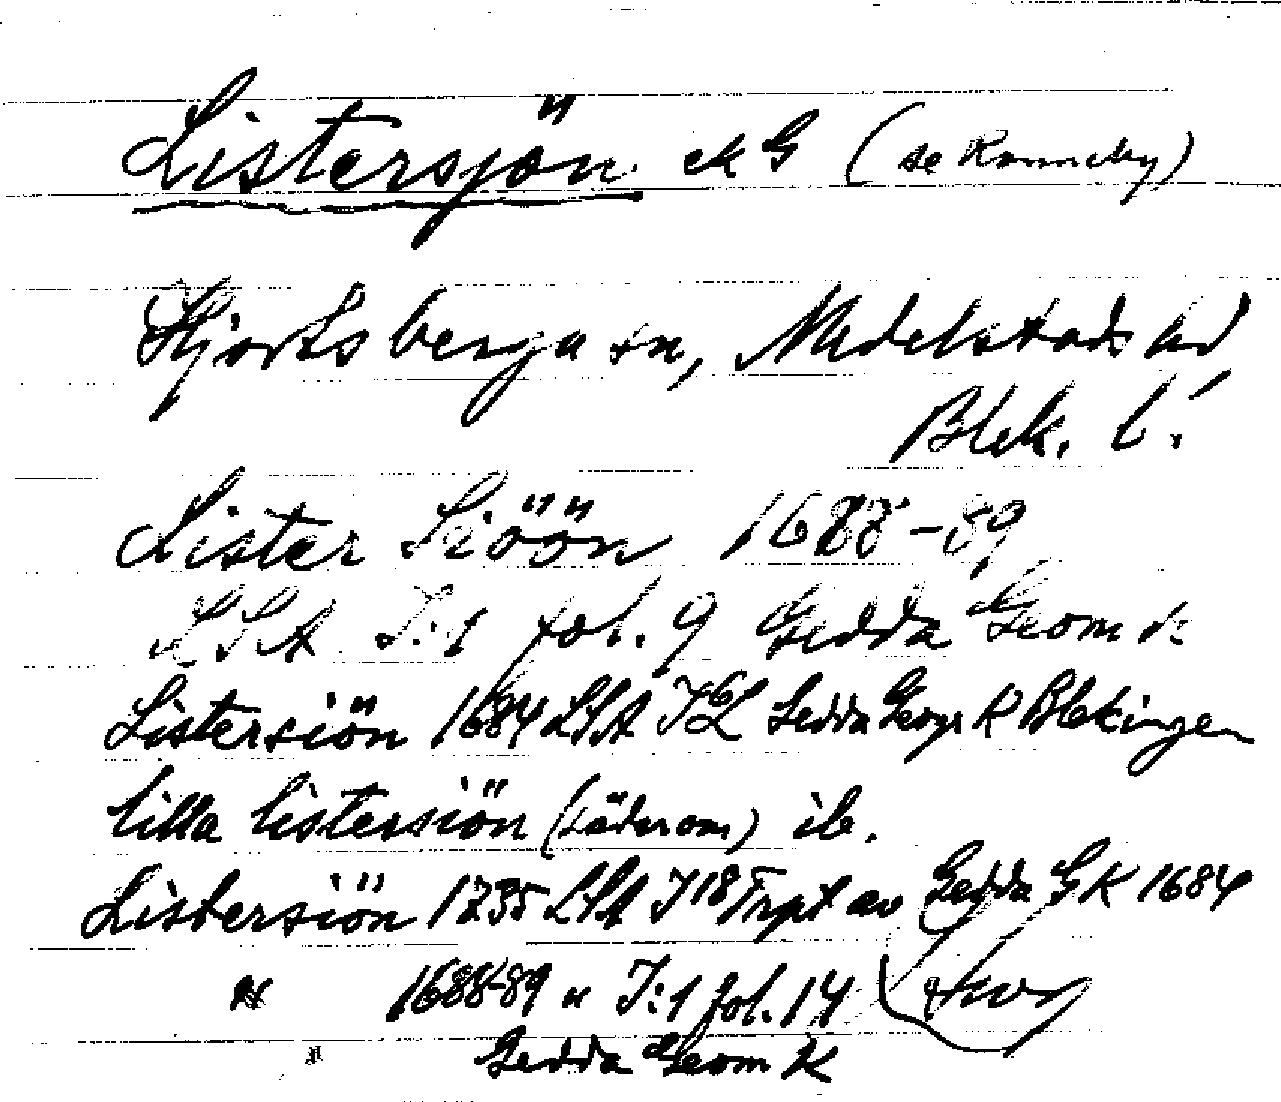 Listersjön ek G (se Ronneby)
Hjortsberga sn, Medelstads hd
Blek. l.
Lister Siöön 1688-89
LSA I:1 fol. 9 Gedda Geom k
Listersiön 1684 LSA I 6 L Gedda Geogr K Blekingen
Lilla Listersiön (söder om) ib.
Listersiön 1735 LSA I 18 Trpt av Gedda G K 1684
" 1688-89 " I:1 fol. 14
Gedda Geom K